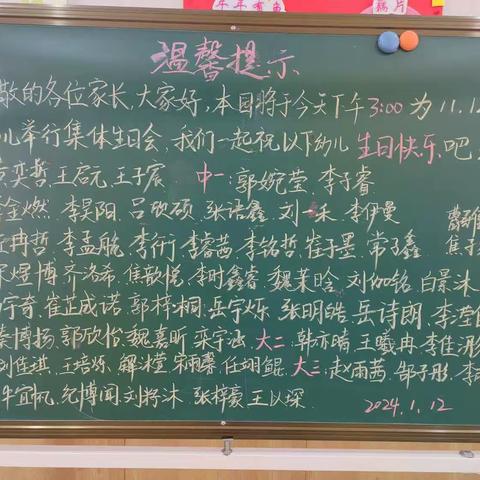 温馨提示
敬的各位家长,大家好,本园将于今天下午3:00为11.12
儿举行集体生日会,我们一起祝以下幼儿 生日快乐吧
奕哲,王启元,王子宸 中一:郭婉莹,李子睿
燃,李昊阳,吕欣硕,张语鑫,刘一禾,李伊曼
冉哲,李孟航,李衍,李睿茜,李铭哲,崔子墨,常子鑫
煜博,齐洛希,焦歆悦,李时鑫睿,魏莱晗,刘伽铭,白景沐
宇奇,崔正成诺,郭梓桐,岳宇烁,张明皓,岳诗朗,李滢
博扬,郭欣怡,魏嘉昕,栾宇涵,大二:韩亦晴,王曦冉,李佳
刘佳琪,王培烁,宋雨馨,任翊鲲,大三:赵雨茜,郜子彤,李
牛宜帆,纪博闻,刘将沐,张梓豪,王以琛
2024.1.12